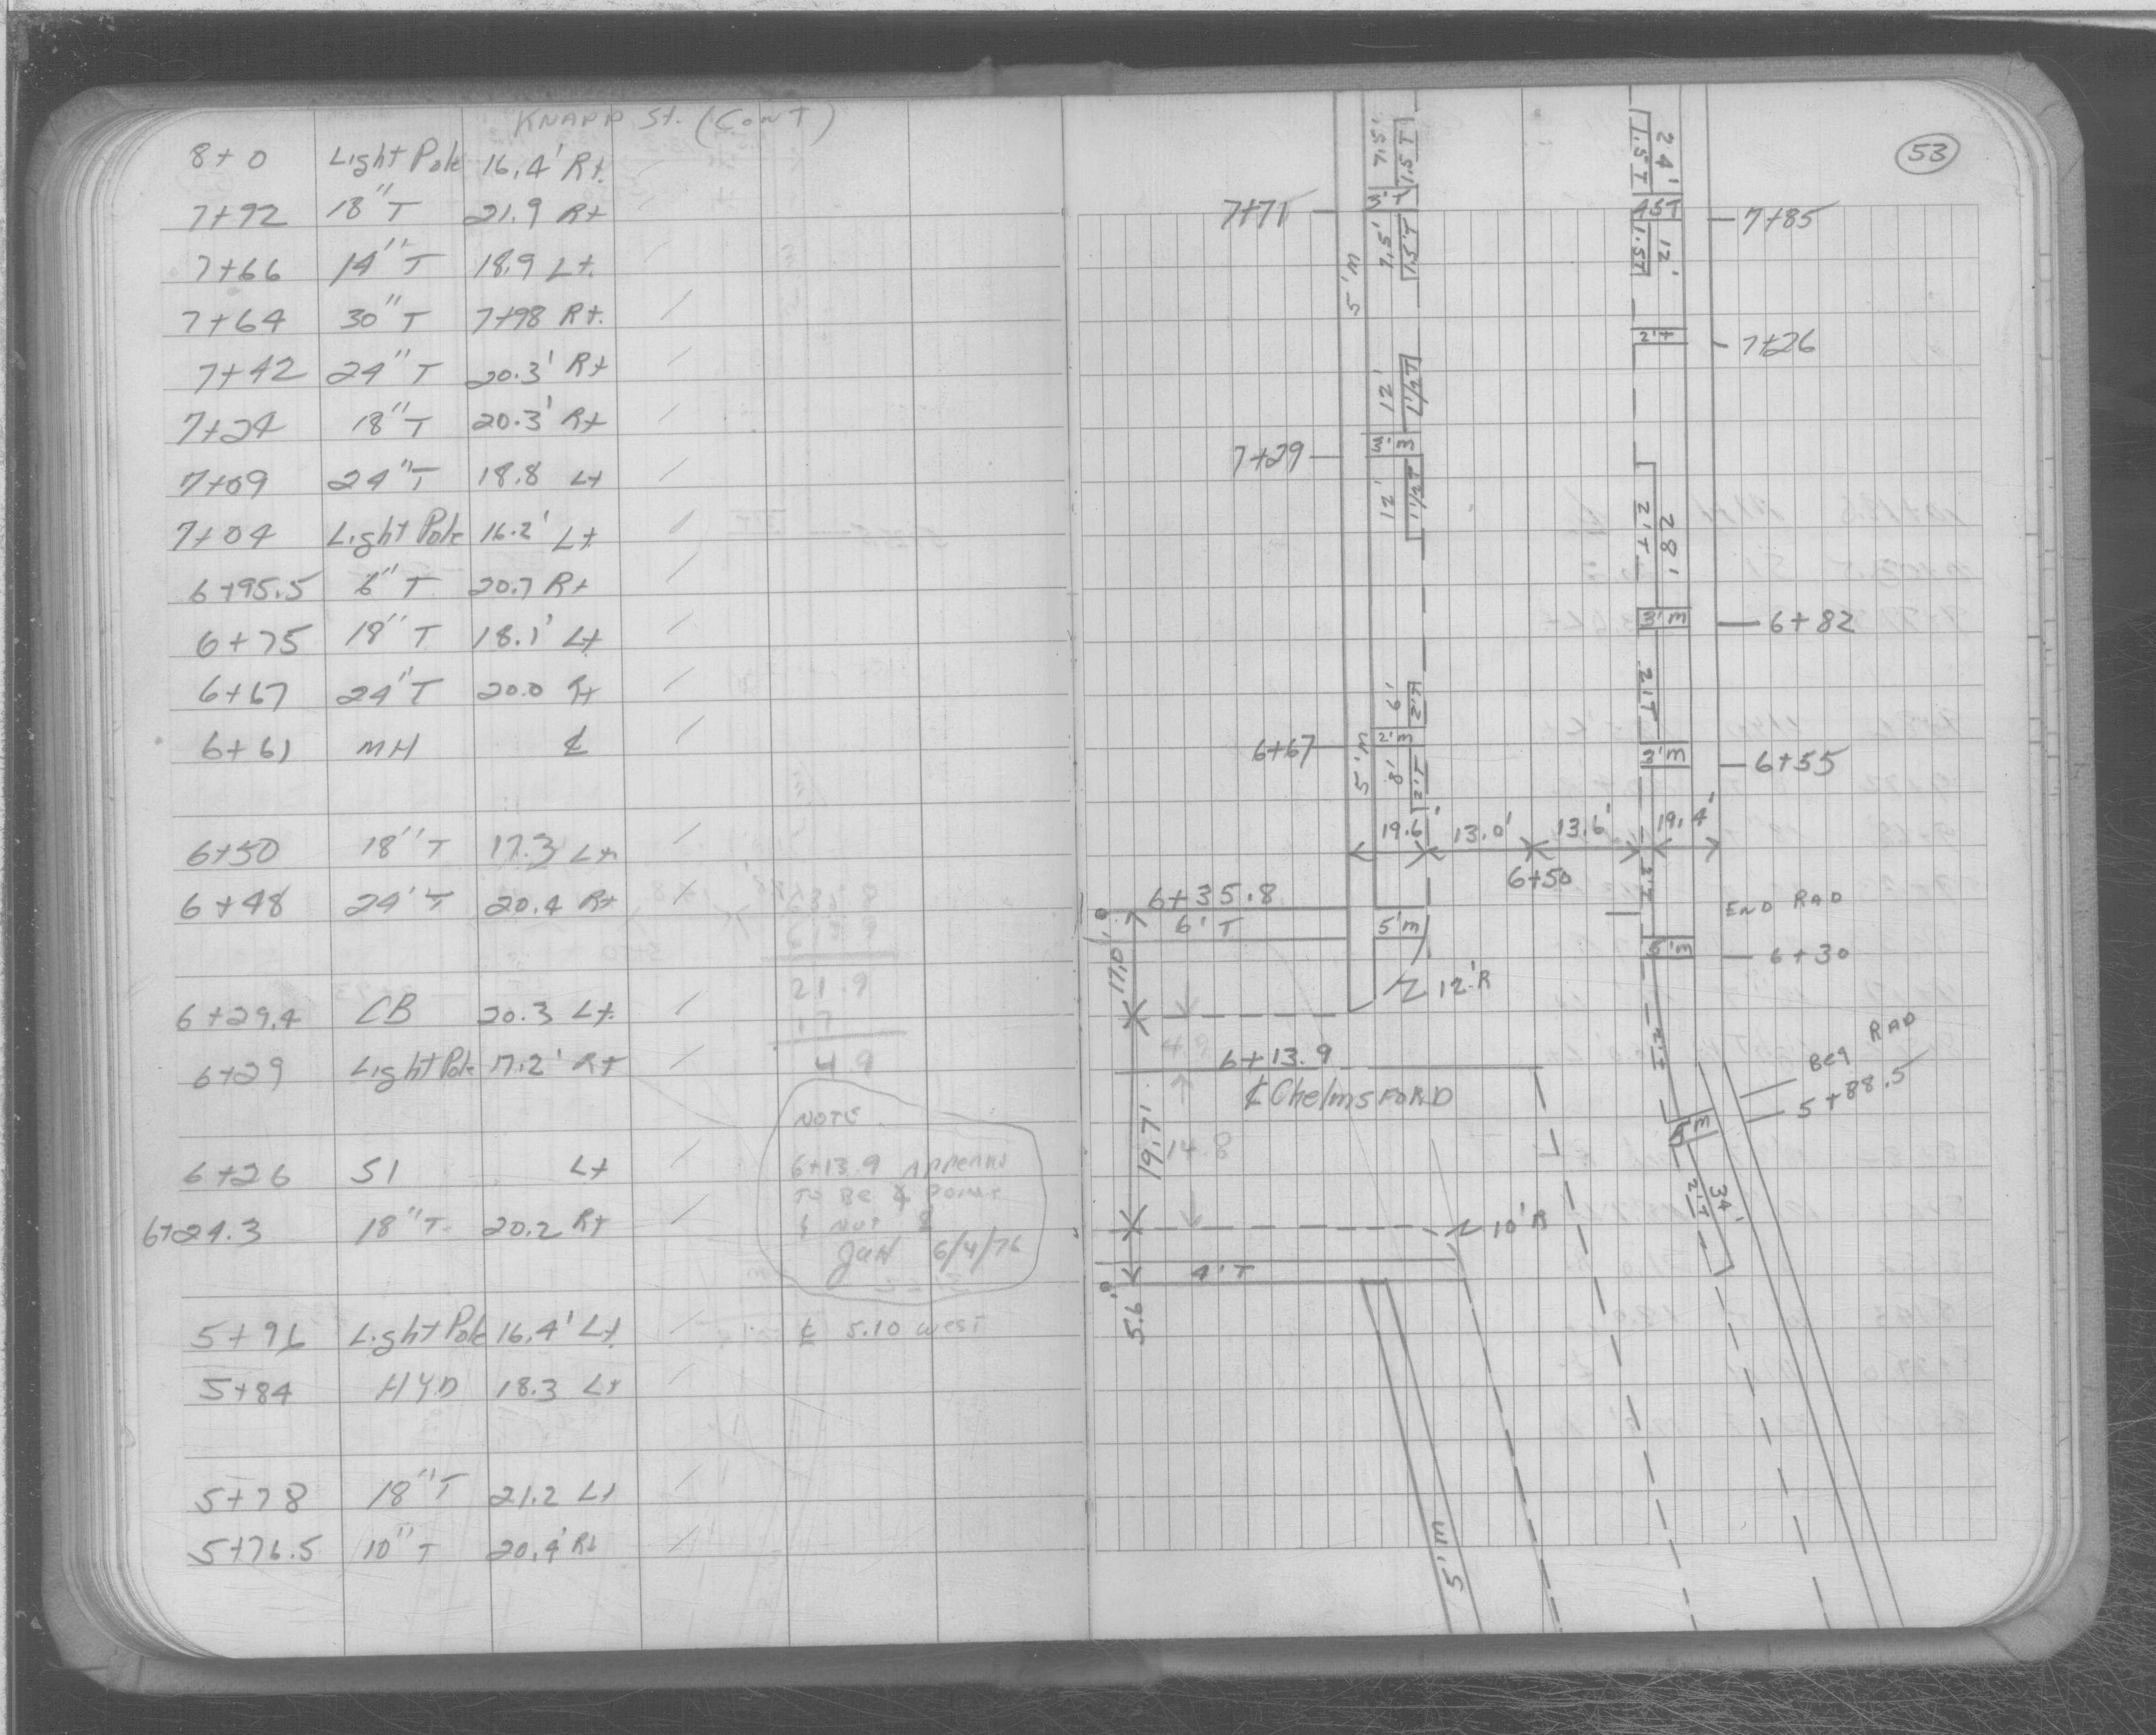 KNAPP St. (CONT)
8+0 Light Pole 16.4' Rt.
7+92 18" T 21.9 Rt
7+66 14" T 18.9 Lt.
7+64 30" T 7+98 Rt.
7+42 24" T 20.3' Rt
7+24 18" T 20.3' Rt
7+09 24" T 18.8 Lt
7+04 Light Pole 16.2' Lt
6+95.5 6" T 20.7 Rt
6+75 18" T 18.1' Lt
6+67 24" T 20.0 Rt
6+61 MH ℄
6+50 18" T 17.3 Lt
6+48 24" T 20.4 Rt
6+29.4 CB 20.3 Lt.
6+29 Light Pole 17.2' Rt
6+26 SI Lt
6+24.3 18" T. 20.2 Rt
5+96 Light Pole 16.4' Lt
5+84 HYD 18.3 Lt
5+78 18" T 21.2 Lt
5+76.5 10" T 20.4' Rt
21.9
17
4.9
NOTE
6+13.9 APPEARS
TO BE ∡ POINT
& NOT ℄
6/4/76
℄ 5.10 WEST
53
7.5' 1.5 T
24' 1.5 T
7+71 3' T
4.5 T 7+85
7.5' 1.5 T
12' 1.5 T
5' M
2' T 7+26
12' 1 1/2 T
7+29 3' M
12' 1 1/2 T
28' 2' T
3' M 6+82
6' 2' T
2' T
6+67 2' M
3' M 6+55
5' M 8' 2' T
19.6' 13.0' 13.6' 19.4'
6+50
2' T
6+35.8
6' T
5' M
END RAD
5' M 6+30
17.0'
12' R
2' T
4.9
6+13.9
℄ Chelmsford
BEG RAD
5+88.5
5' M
19.7' 14.8
34' 2' T
10' R
4' T
5.6'
5' M